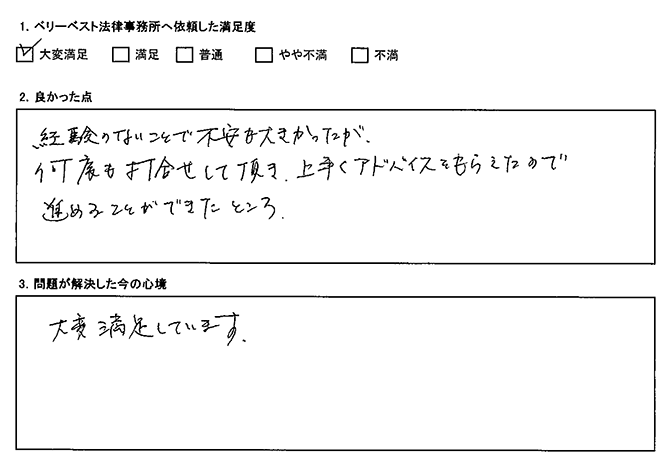 1. ベリーベスト法律事務所へ依頼した満足度
大変満足 満足 普通 やや不満 不満
2. 良かった点
経験のないことで不安も大きかったが、
何度も打合せして頂き、上手くアドバイスをもらえたので
進めることができたところ。
3. 問題が解決した今の心境
大変満足しています。